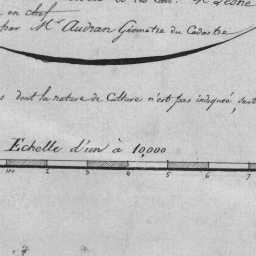 en chef
par Mr Audran Géomètre du Cadastre
dont la nature de Culture n'est pas indiquée, sont
Echelle d'un à 10,000
1 2 3 4 5 6 7